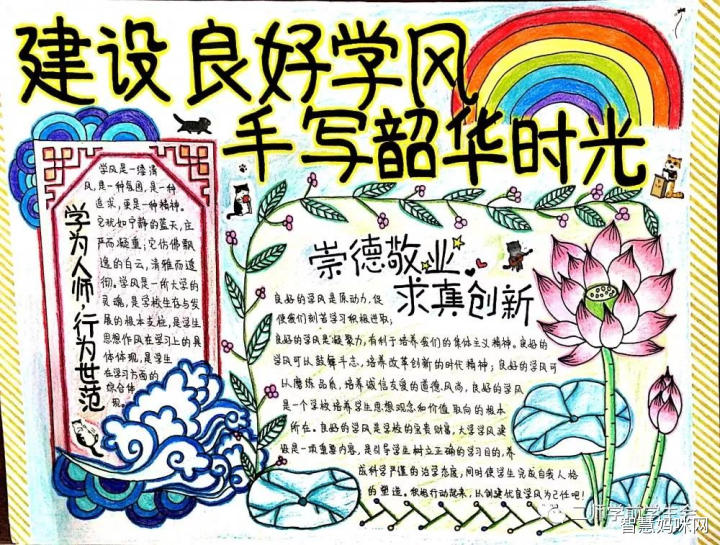 建设良好学风
手写韶华时光
学为人师·行为世范
学风是一缕清
风,是一种氛围,是一种
追求,更是一种精神。
它犹如宁静的蓝天,庄
严而凝重;它仿佛飘
逸的白云,清雅而透
彻。学风是一所大学的
灵魂,是学校生存与发
展的根本支柱,是学生
思想作风在学习上的具
体体现,是学生
在学习方面的
综合体
现。
崇德敬业
求真创新
良好的学风是原动力,促
使我们刻苦学习积极进取;
良好的学风是凝聚力,有利于培养我们的集体主义精神。良好的
学风可以鼓舞斗志,培养改革创新的时代精神;良好的学风可
以磨练品质,培养诚信友爱的道德风尚。良好的学风
是一个学校培养学生思想观念和价值取向的根本
所在。良好的学风是学校的宝贵财富,大学学风建
设是一项重要内容,是引导学生树立正确的学习目的,养
成科学严谨的治学态度,同时使学生完成自我人格
的塑造。积极行动起来,从创建优良学风为己任吧!
二师学前学生会
智慧妈咪网